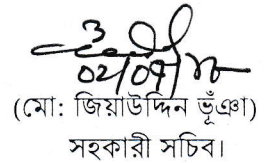 ০২/০৭/১৮
(মো: জিয়াউদ্দিন ভূঁঞা)
সহকারী সচিব।